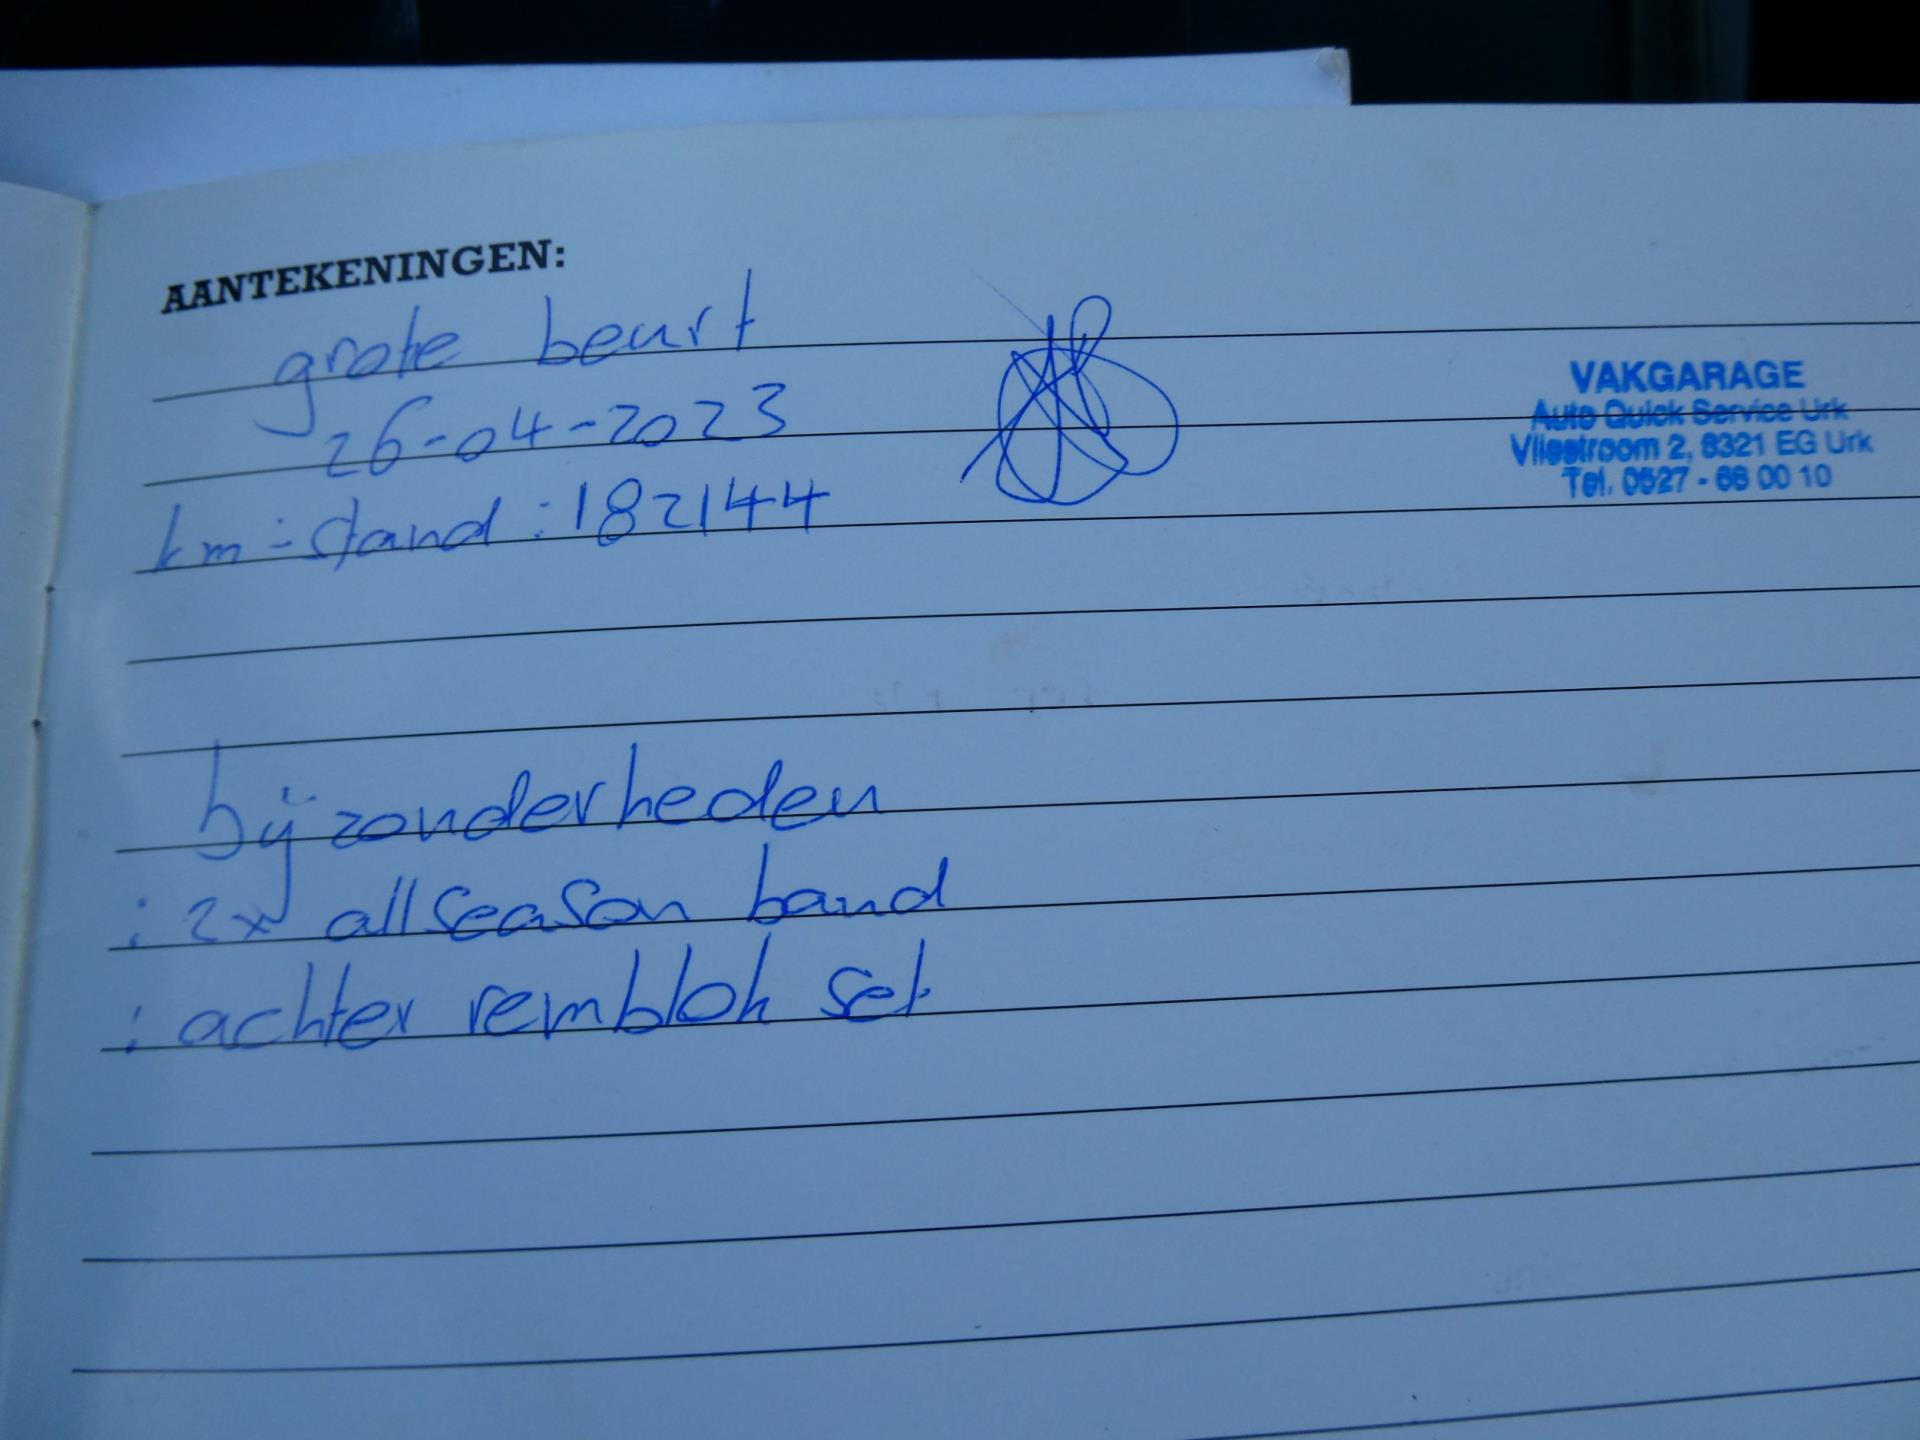 AANTEKENINGEN:
grote beurt
26-04-2023
km-stand: 182144
VAKGARAGE
Auto Quick Service Urk
Vliestroom 2, 8321 EG Urk
Tel. 0527 - 68 00 10
bijzonderheden
: 2x allseason band
: achter remblok set